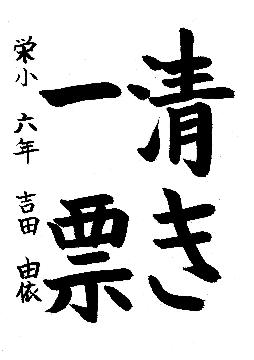 清き
一票
栄小 六年 吉田 由依